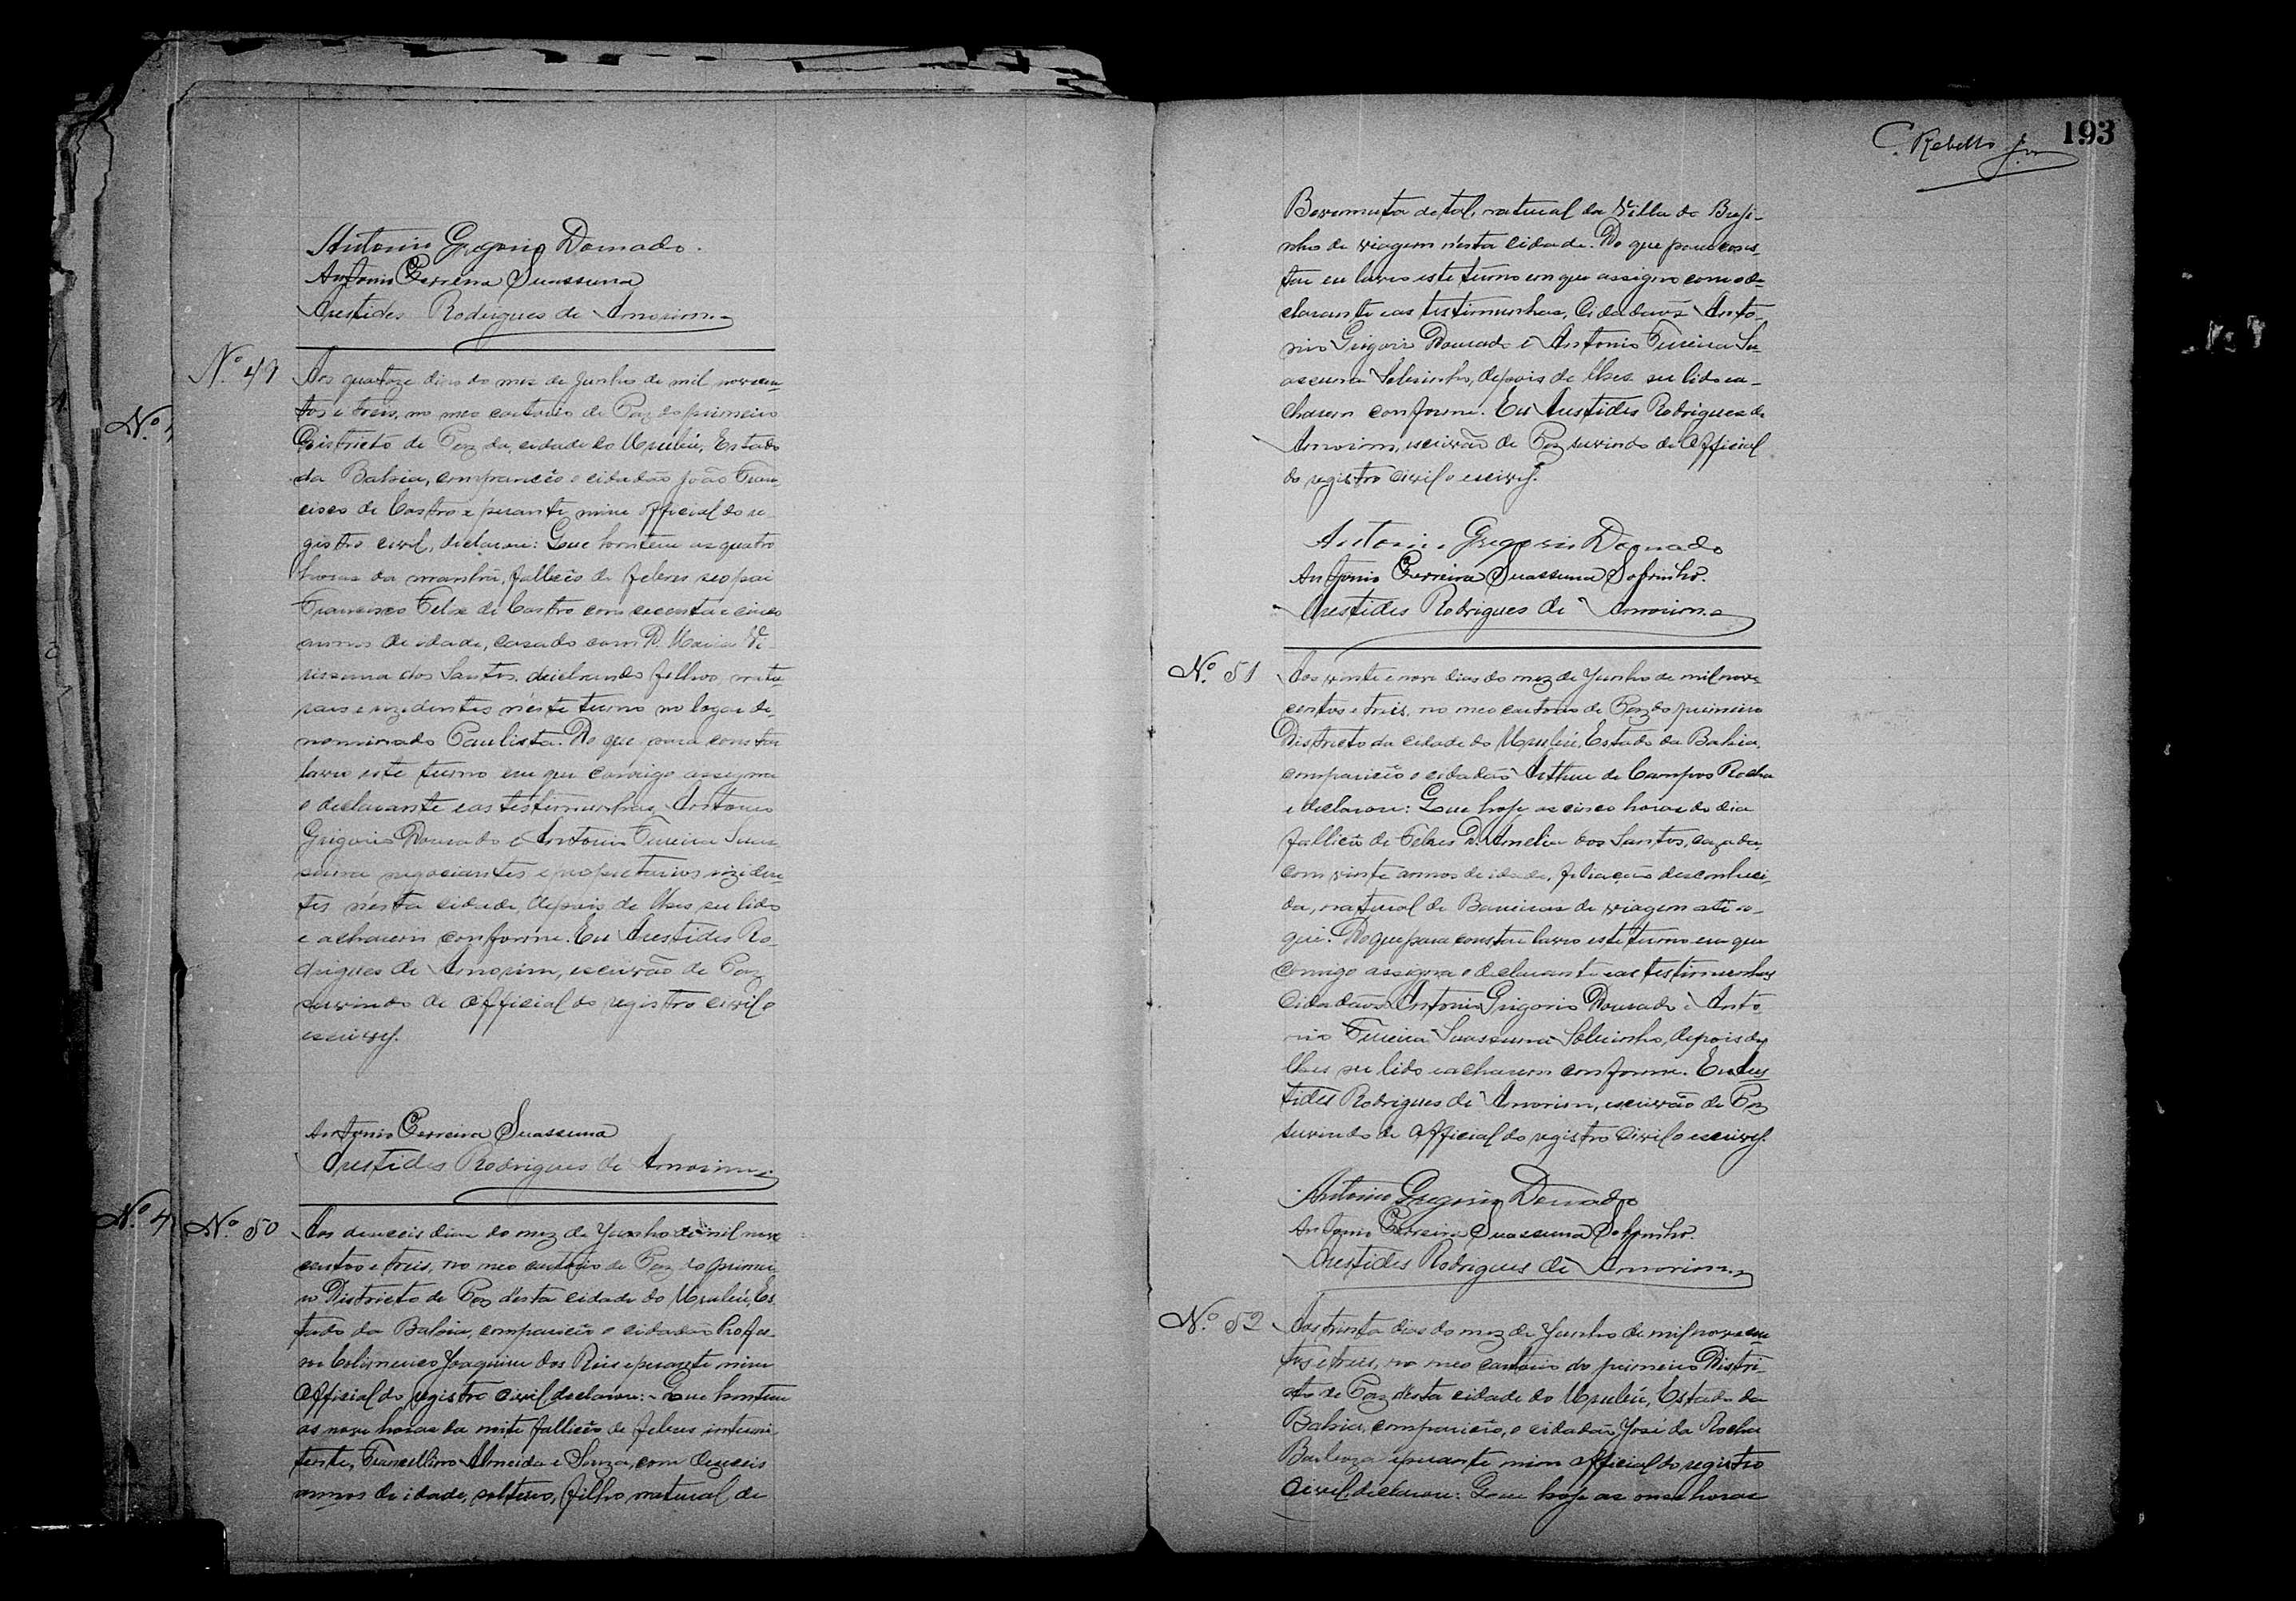 Antonio Gregorio Dourado.
Antonio Ferreira Suassuna
Arestides Rodrigues de Amorim
Nº 49
Aos quatoze dias do mez de Junho de mil novecen-
tos e treis, no meo cartorio de Paz do primeiro
Districto de Paz da cidade do Urubú, Estado
da Bahia, compareceo o cidadão João Fran-
cisco de Castro e perante mim official do re-
gistro civil, declarou: Que hontem as quatro
horas da manhã, falleceo de febres seo pai
Francisco Felix de Castro com secenta e cinco
annos de idade, casado com D. Maria Ve-
rissima dos Santos, deichando filhos, natu-
raes e rezidentes n'este termo no logar de-
nominado Paulista. Do que para constar
lavro este termo em que comigo assigna
o declarante e as testimunhas Antonio
Grigorio Dourado e Antonio Ferreira Suas-
suna negociantes e proprietarios reziden-
tes n'esta cidade, depois de lhes ser lido
e acharem conforme. Eu Arestides Ro-
drigues de Amorim, escrivão de Paz
servindo de Official do registro civil o
escrevy.
Antonio Ferreira Suassuna
Arestides Rodrigues de Amorim
Nº 4
Nº 50
Aos deseceis dias do mez de Junho de mil nove
centos e treis, no meo cartorio de Paz do primei-
ro Districto de Paz d'esta cidade do Urubú, Es-
tado da Bahia, compareceo o cidadão Profes-
sor Joaquim dos Reis e perante mim
Official do registro civil, declarou: Que hontem
as nove horas da noite falleceo de febres intermi-
tente, Francellino Almeida e Souza, com deseceis
annos de idade, solteiro, filho natural de
193
C. Rebello Jor
de tal, natural da Villa do Breji-
nho de viagem n'esta cidade. Do que para cons-
tar eu lavro este termo em que assigno com o de-
clarante e as testimunhas, Cidadãos Anto-
nio Grigorio Dourado e Antonio Ferreira Su-
assuna Sobrinho, depois de lhes ser lido e a-
charem conforme. Eu Arestides Rodrigues de
Amorim, escrivão de Paz servindo de Official
do registro civil o escrevy.
Antonio Gregorio Dourado
Antonio Ferreira Suassuna Sobrinho.
Arestides Rodrigues de Amorim
Nº 51
Aos vinte e nove dias do mez de Junho de mil nove
centos e treis, no meo cartorio de Paz do primeiro
Districto da cidade do Urubú, Estado da Bahia,
compareceo o cidadão Arthur de Campos Rocha
e declarou: Que hoje as cinco horas do dia
falleceo de Febres D. Amelia dos Santos, cazada,
com vinte annos de idade, filiação desconheci-
da, natural de Barreiras de viagem ate a-
qui. Do que para constar lavro este termo em que
comigo assigna o declarante e as testimunhas
Cidadãos Antonio Grigorio Dourado e Anto-
nio Ferreira Suassuna Sobrinho, depois de
lhes ser lido e acharem conforme. Eu Ares-
tides Rodrigues de Amorim, escrivão de Paz
servindo de Official do registro Civil o escrevy.
Antonio Gregorio Dourado
Antonio Ferreira Suassuna Sobrinho.
Arestides Rodrigues de Amorim
Nº 52
Aos trinta dias do mez de Junho de mil novecen-
tos e treis, no meo cartorio do primeiro Distri-
cto de Paz d'esta cidade do Urubú, Estado da
Bahia, compareceo, o cidadão José da Rocha
Barboza e perante mim Official do registro
Civil, declarou: Que hoje as onze horas